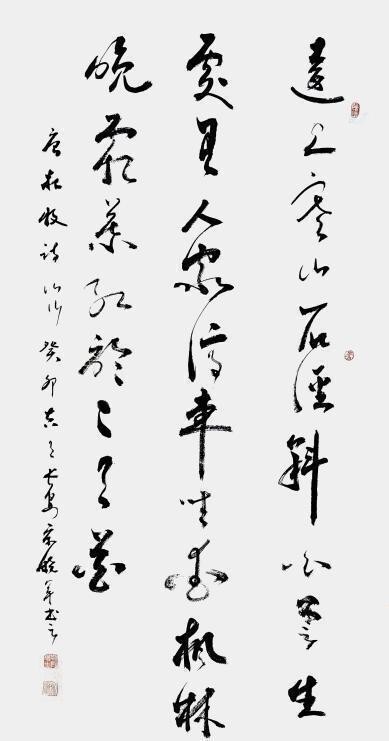 遠上寒山石徑斜白雲生
處有人家停車坐愛楓林
晚霜葉紅於二月花
唐杜牧詩山行癸卯長安書